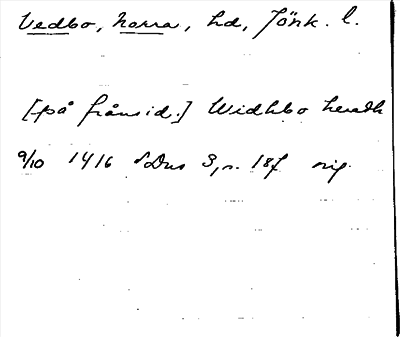 Vedbo, Norra, hd, Jönk. l.
[på frånsid.] Widhbo heradh
9/10 1416 SDns 3, s. 187 orig.